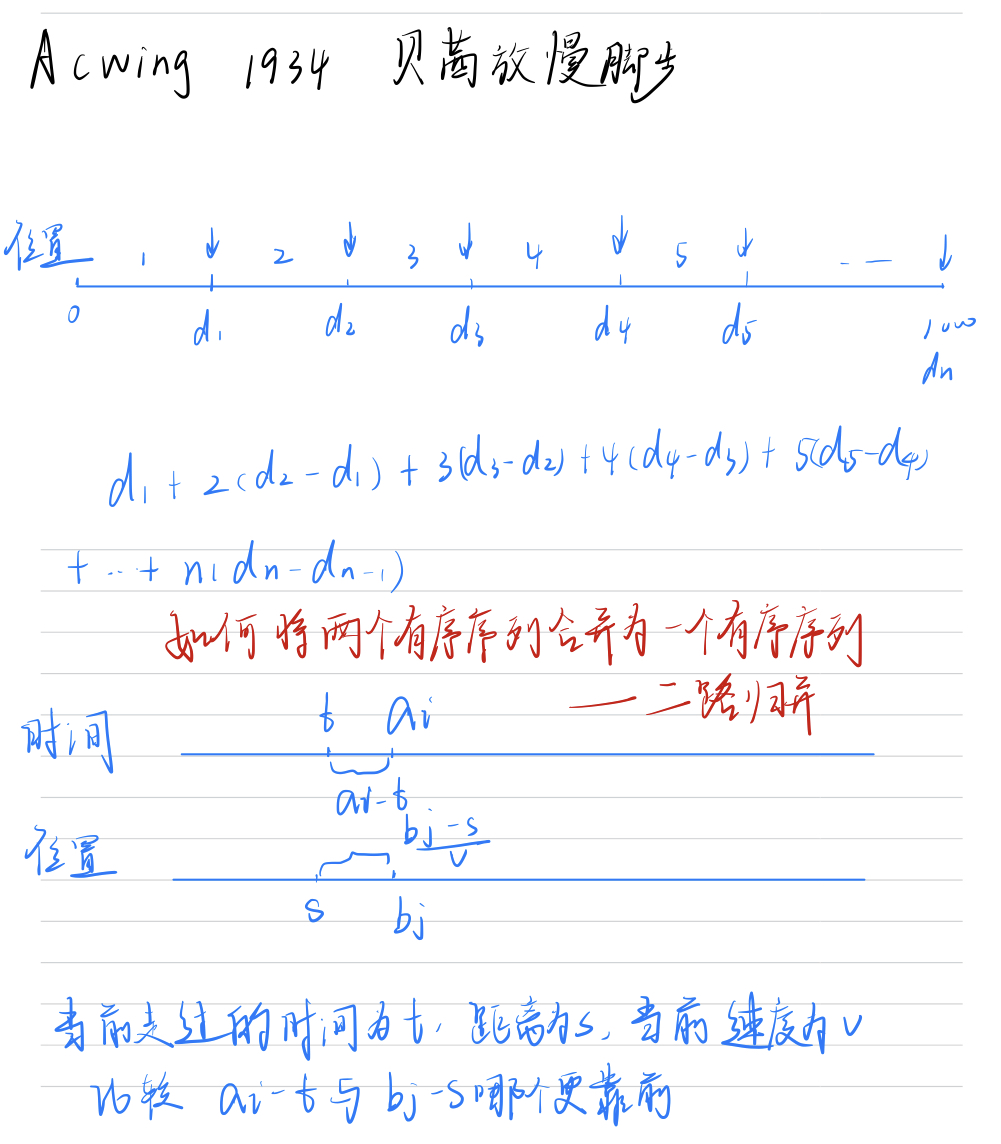 Acwing 1934 贝茜放慢脚步
位置 1 ↓ 2 ↓ 3 ↓ 4 ↓ 5 ↓ -- ↓
0 d₁ d₂ d₃ d₄ d₅ 1000
dn
d₁ + 2(d₂-d₁) + 3(d₃-d₂) + 4(d₄-d₃) + 5(d₅-d₄)
+ ... + n(dn-dn-₁)
如何将两个有序序列合并为一个有序序列
——二路归并
时间 t ai
ai-t
位置 bj-s/v
s bj
当前走过的时间为t，距离为s，当前速度为v
比较 ai-t与bj-s哪个更靠前